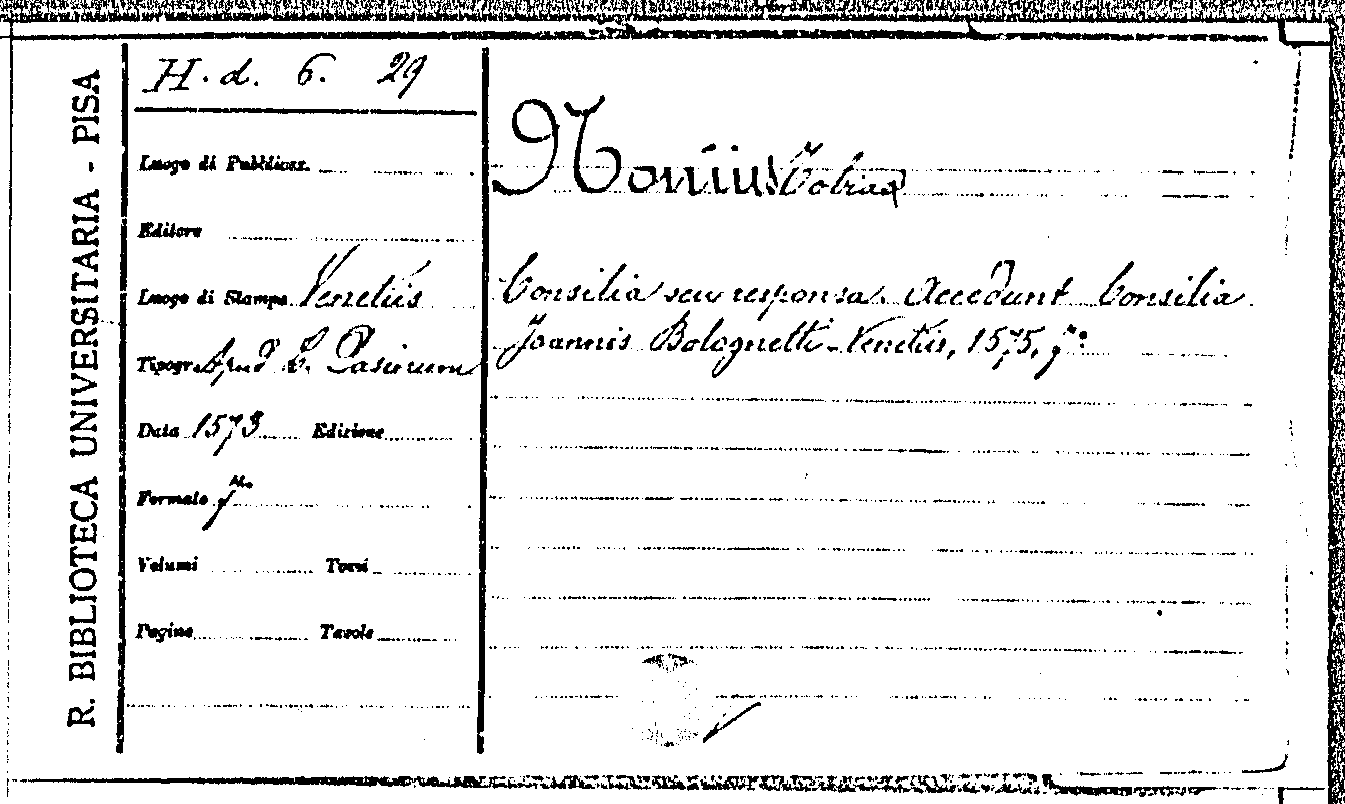 R. BIBLIOTECA UNIVERSITARIA - PISA
H. d. 6. 29
Luogo di Pubblicaz.
Editore
Luogo di Stampa Venetiis
Tipogr. Apud L. Pasinum
Data 1573 Edizione
Formato f.
Volumi Tomi
Pagine Tavole
Nonius
Consilia seu responsa. Accedunt Consilia
Joannis Bolognetti. Venetiis, 1575, f.º